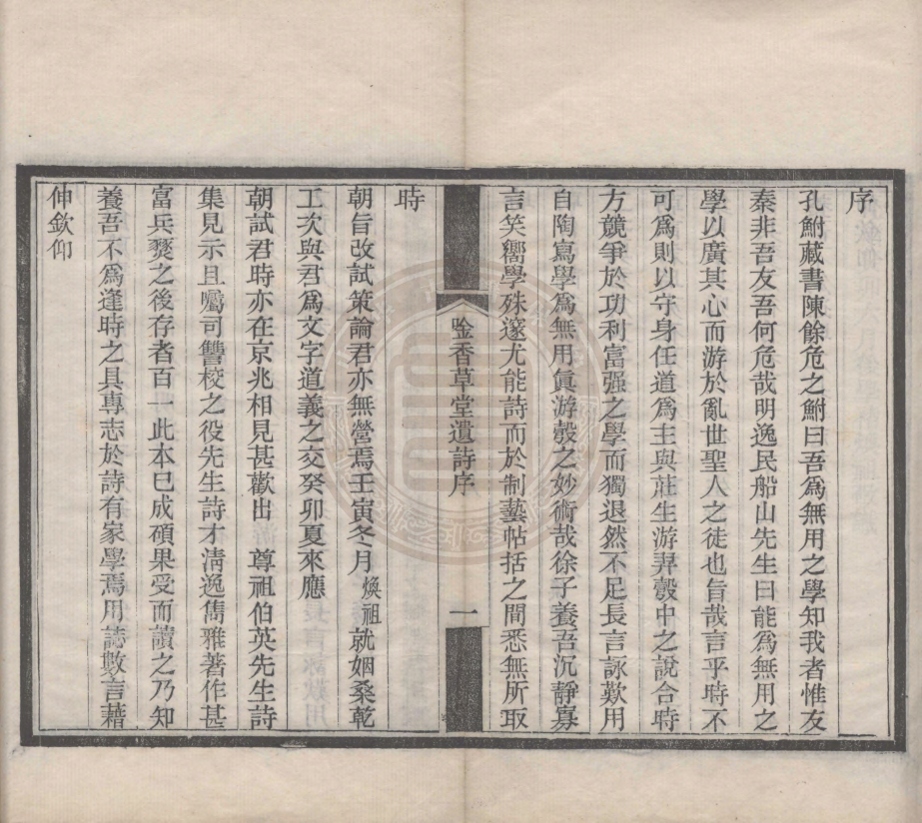 序
孔鮒藏書陳餘危之鮒曰吾爲無用之學知我者惟友
秦非吾友吾何危哉明逸民船山先生曰能爲無用之
學以廣其心而游於亂世聖人之徒也旨哉言乎時不
可爲則以守身任道爲主與莊生游羿彀中之說合時
方競爭於功利富强之學而獨退然不足長言詠歎用
自陶寫學爲無用眞游彀之妙術哉徐子養吾沉靜寡
言笑嚮學殊邃尤能詩而於制藝帖括之間悉無所取
唫香草堂遺詩序 一
時
朝旨改試策論君亦無營焉壬寅冬月煥祖就姻桑乾
工次與君爲文字道義之交癸卯夏來應
朝試君時亦在京兆相見甚歡出 尊祖伯英先生詩
集見示且囑司讐校之役先生詩才淸逸雋雅著作甚
富兵燹之後存者百一此本已成碩果受而讀之乃知
養吾不爲逢時之具專志於詩有家學焉用誌數言藉
伸欽仰